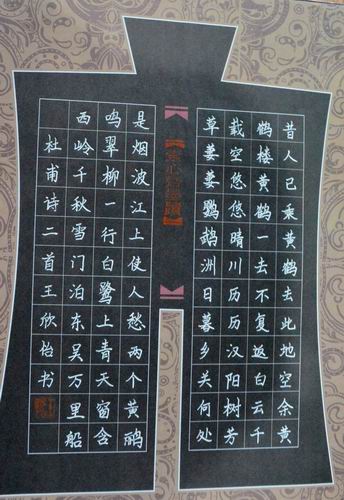 昔人已乘黄鹤去此地空余黄
鹤楼黄鹤一去不复返白云千
载空悠悠晴川历历汉阳树芳
草萋萋鹦鹉洲日暮乡关何处
是烟波江上使人愁两个黄鹂
鸣翠柳一行白鹭上青天窗含
西岭千秋雪门泊东吴万里船
杜甫诗二首王欣怡书